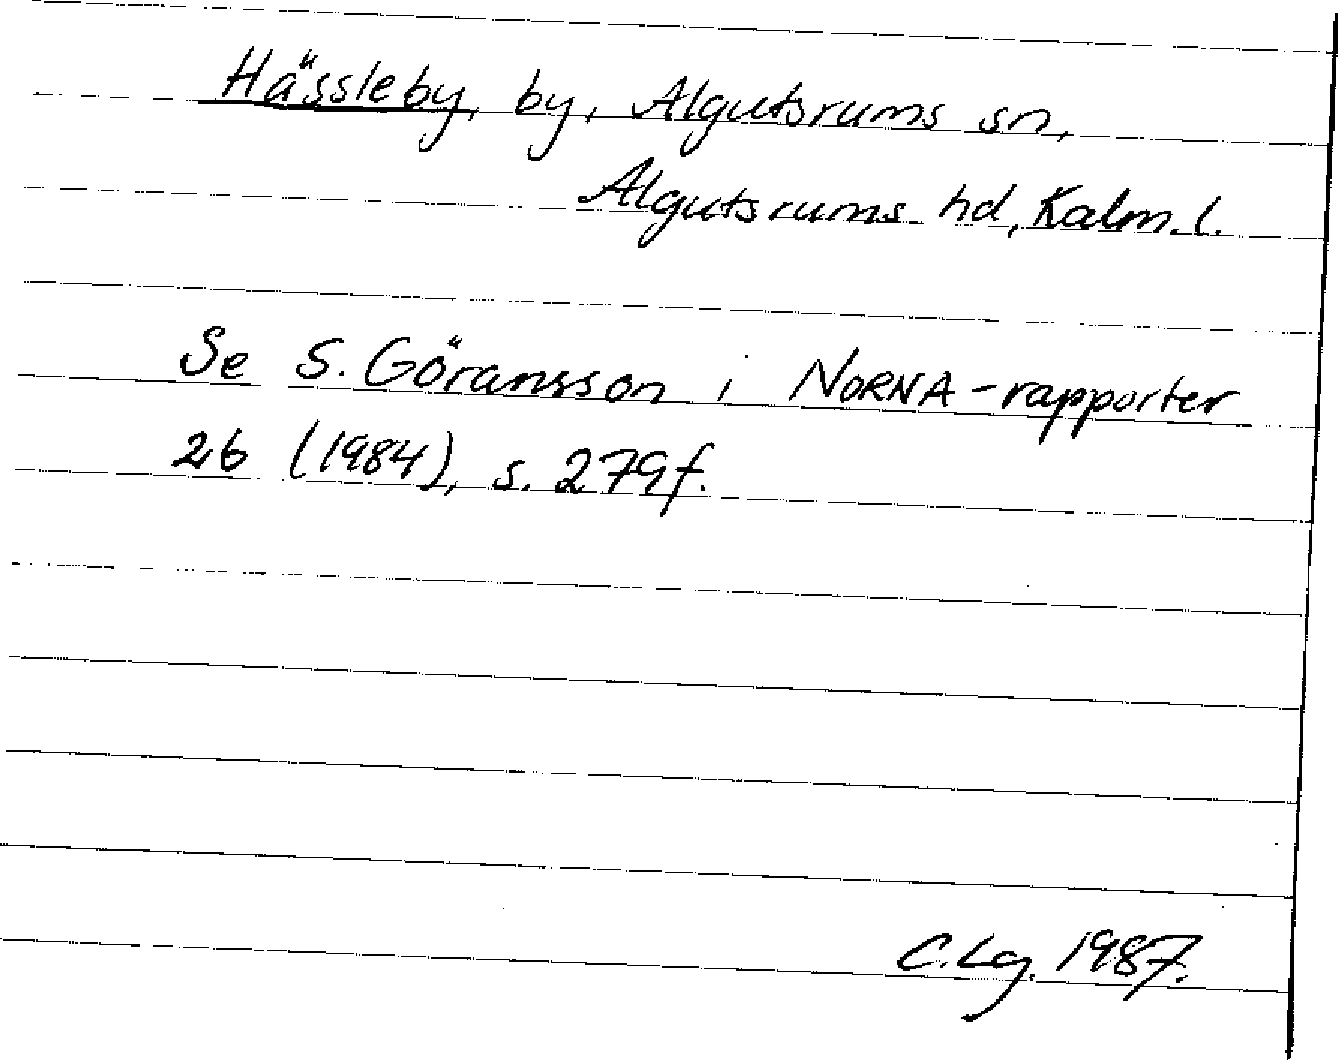 Hässleby, by, Algutsrums sn,
Algutsrums hd, Kalm. l.
Se S. Göransson i NORNA-rapporter
26 (1984), s. 279f.
C. Lg. 1987.